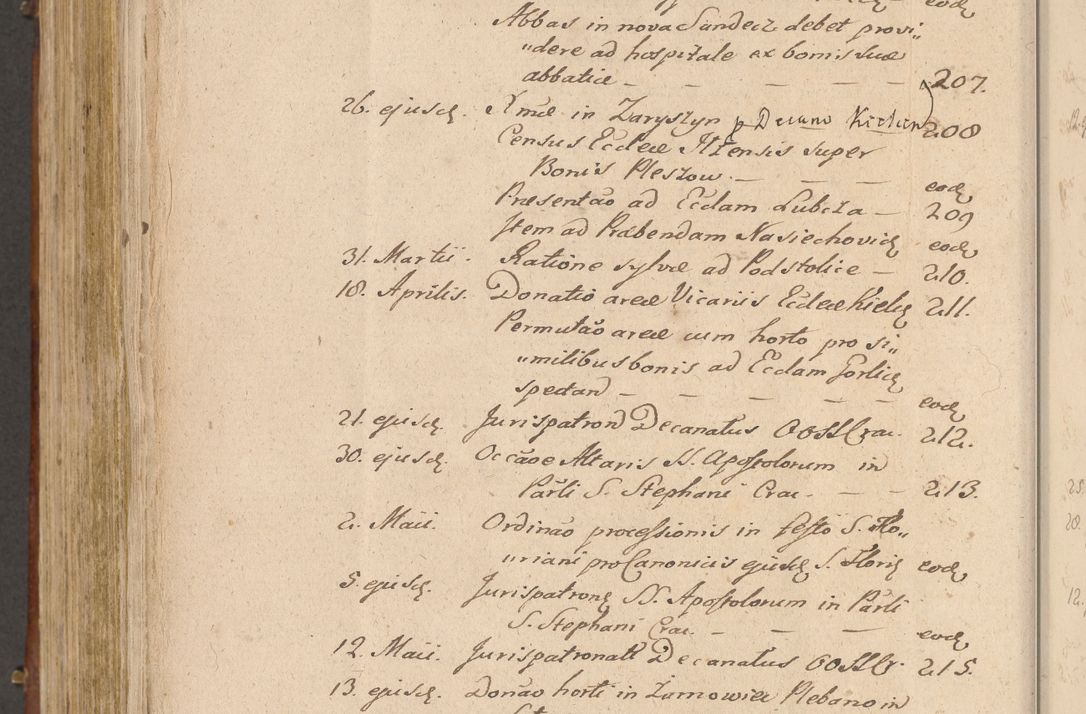 Abbas in nova Sandecz debet provi„
„dere ad hospitale ex bonis suæ
abbatiæ — — — — — 207.
26. ejusdꝫ. in Zaryszyn p Decano Kielcen 208
Census Ecclæ Ilzensis super
Bonis Pleszow. — — — — eodꝫ
Præsentão ad Ecclam Lubcza — 209
Item ad Præbendam Nasiechovicꝫ eodꝫ
31. Martii. Ratione sylvæ ad Podstolice — 210.
18. Aprilis. Donatio areæ Vicariis Ecclæ Kielcꝫ 211.
Permutão areæ cum horto pro si„
„milibus bonis ad Ecclam Gorlicꝫ
spectand — — — — — eodꝫ
21. ejusdꝫ. Jurispatron Decanatus OOSS Crac. 212.
30. ejusdꝫ. Occãoe Altaris SS. Apostolorum in
Parli S. Stephani Crac. — — 213.
2. Maii. Ordinão processionis in festo S. Flo„
„riani pro Canonicis ejusdꝫ S. Floriꝫ eodꝫ
5. ejusdꝫ. Jurispatronꝫ SS. Apostolorum in Parli
S. Stephani Crac. — — — eodꝫ
12. Maii. Jurispatronatꝫ Decanatus OOSS Cr. 215.
13. ejusdꝫ. Donão horti in Zarnowiec Plebano in